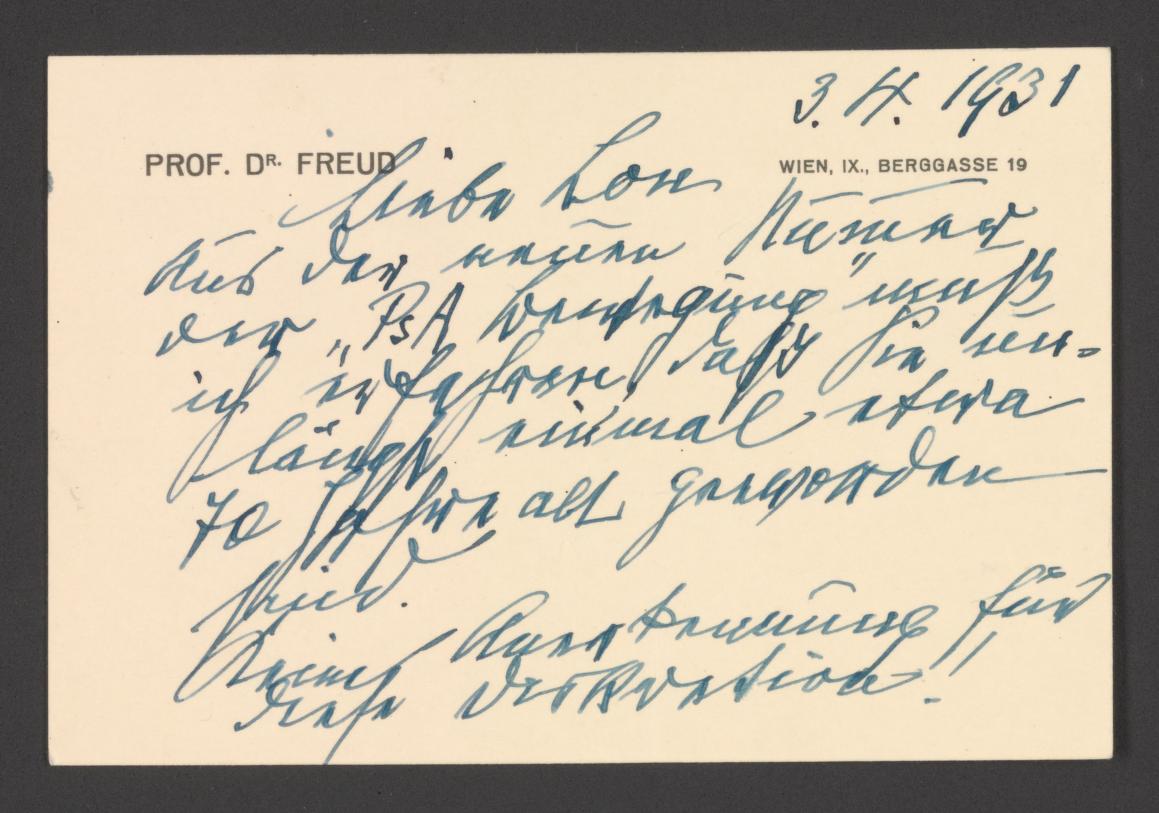 3. IV. 1931
PROF. DR. FREUD WIEN, IX., BERGGASSE 19
Liebe Lou
Aus der neuen Nummer
der „PsA Bewegung" muß
ich erfahren, daß Sie un-
längst einmal etwa
70 Jahre alt geworden
sind.
Anerkennung für
diese Diskretion!